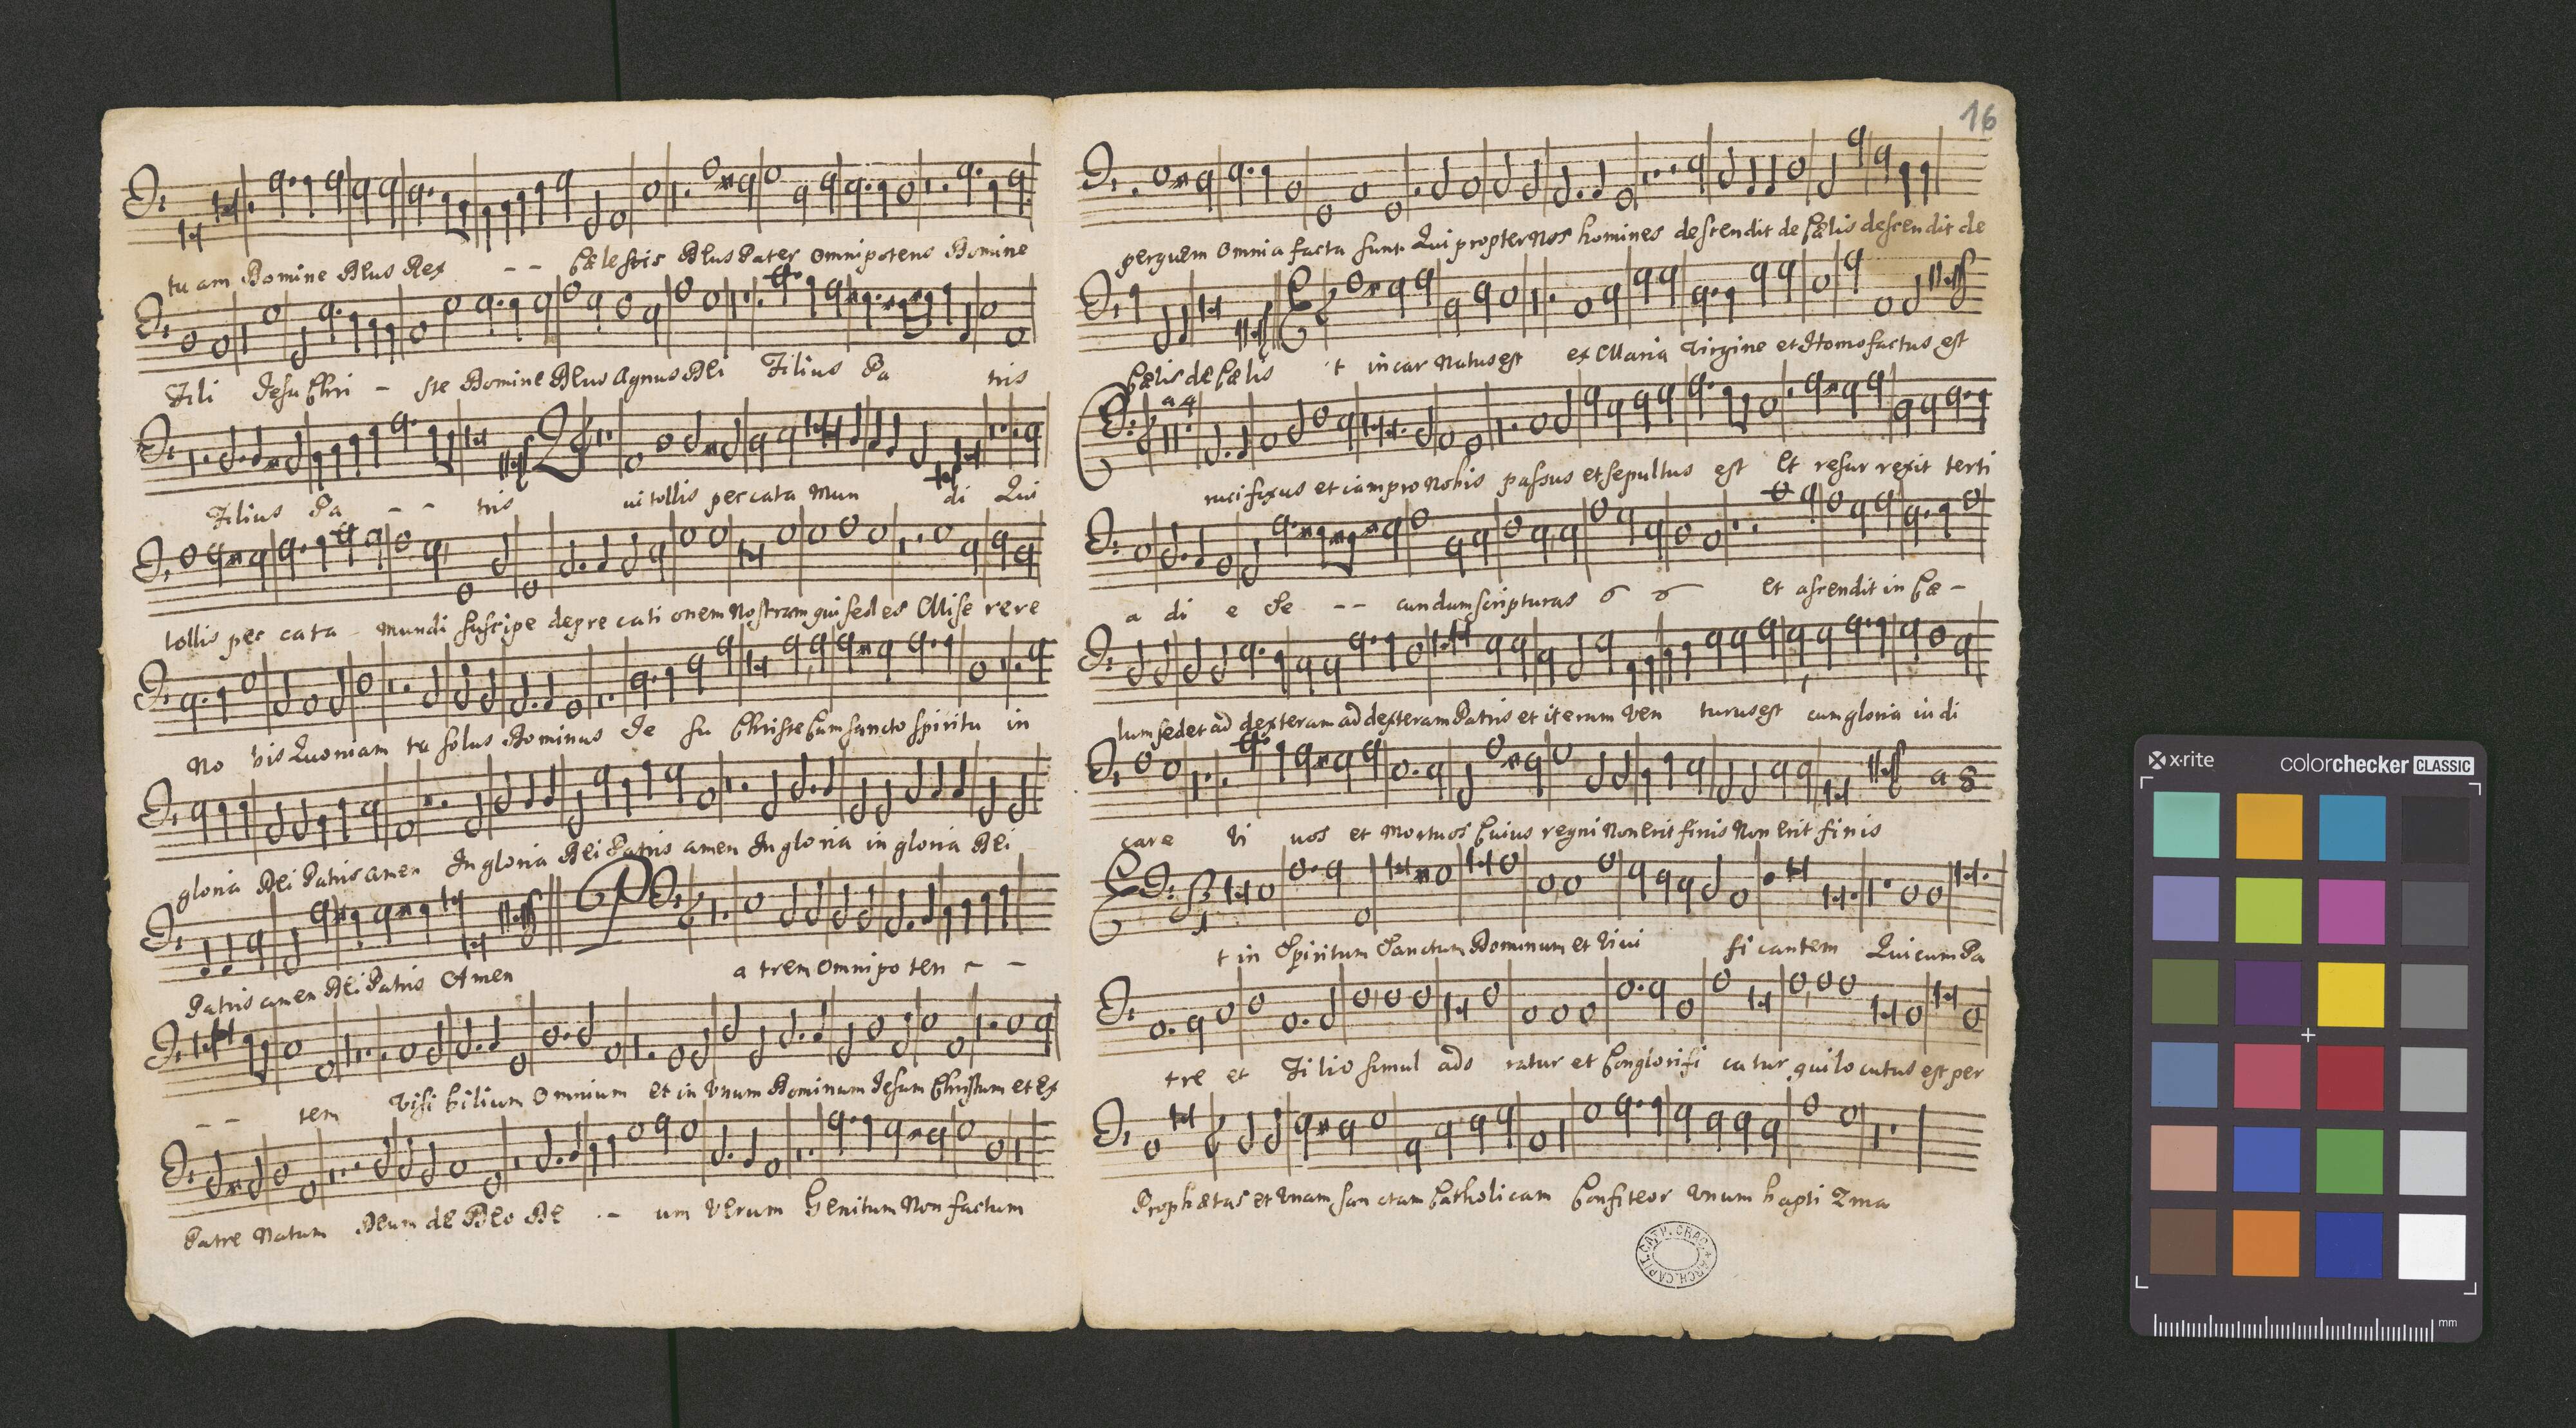 tu am Domine Deus Rex - - Cælestis Deus Pater omnipotens Domine
Fili Jesu Chri - ste Domine Deus Agnus Dei Filius Pa tris
Filius Pa - - tris ui tollis peccata Mun di Qui
tollis pec cata - mundi suscipe depre cati onem Nostram qui sedes Mise rere
No bis Quoniam tu solus Dominus Je su Christe Cum sancto Spiritu in
gloria Dei Patris amen In gloria Dei Patris amen In gloria in gloria Dei
Patris amen Dei Patris Amen P a trem Omnipo ten - -
- - tem Visi bilium Omnium et in Vnum Dominum Jesum Christum et Ex
Patre Natum Deum de Deo De - - um Verum Genitum Non factum
16
per quem Omnia facta sunt Qui propter Nos homines descendit de Cælis descendit de
Cælis de Cælis E t incar Natus est ex Maria Virgine et Homo factus est
a 4
C rucifixus etiam pro Nobis passus et sepultus est Et resur rexit terti
a di e Se - - cundum scripturas Et ascendit in Cæ -
lum sedet ad dexteram ad dexteram Patris et iterum Ven turus est cum gloria iudi
care Vi uos et Mortuos Cuius regni Non erit finis Non erit finis
a 8
E t in Spiritum Sanctum Dominum et Viui fi cantem Qui cum Pa
tre et Filio simul ado ratur et Conglorifi catur qui locutus est per
Prophætas et Vnam san ctam Catholicam Confiteor Vnum bapti Zma
ARCH. CAPIT. CATH. CRAC.
x·rite colorchecker CLASSIC
mm